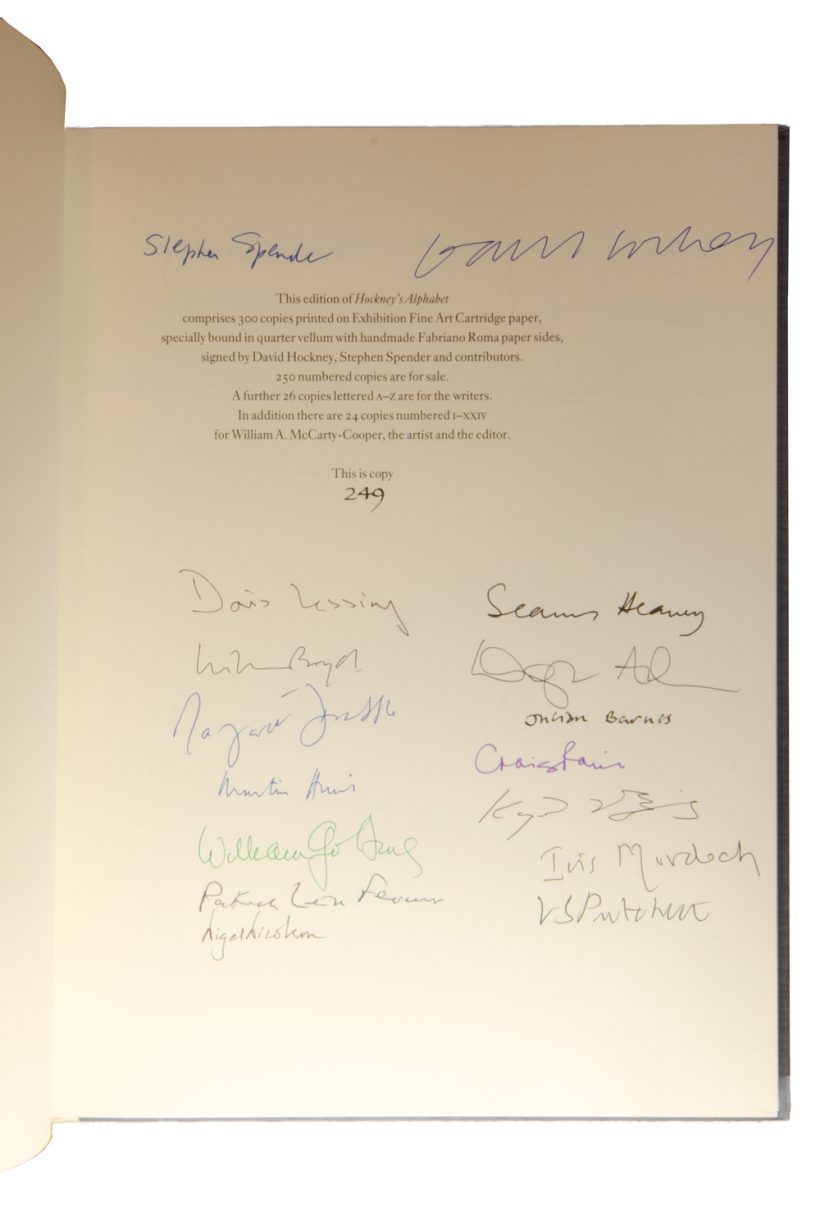 Stephen Spender David Hockney
This edition of Hockney's Alphabet
comprises 300 copies printed on Exhibition Fine Art Cartridge paper,
specially bound in quarter vellum with handmade Fabriano Roma paper sides,
signed by David Hockney, Stephen Spender and contributors.
250 numbered copies are for sale.
A further 26 copies lettered A–Z are for the writers.
In addition there are 24 copies numbered I–XXIV
for William A. McCarty-Cooper, the artist and the editor.
This is copy
249
Doris Lessing
William Boyd
Margaret Drabble
Martin Amis
William Golding
Patrick Leigh Fermor
Nigel Nicolson
Seamus Heaney
Douglas Adams
Julian Barnes
Craig Raine
Iris Murdoch
V S Pritchett